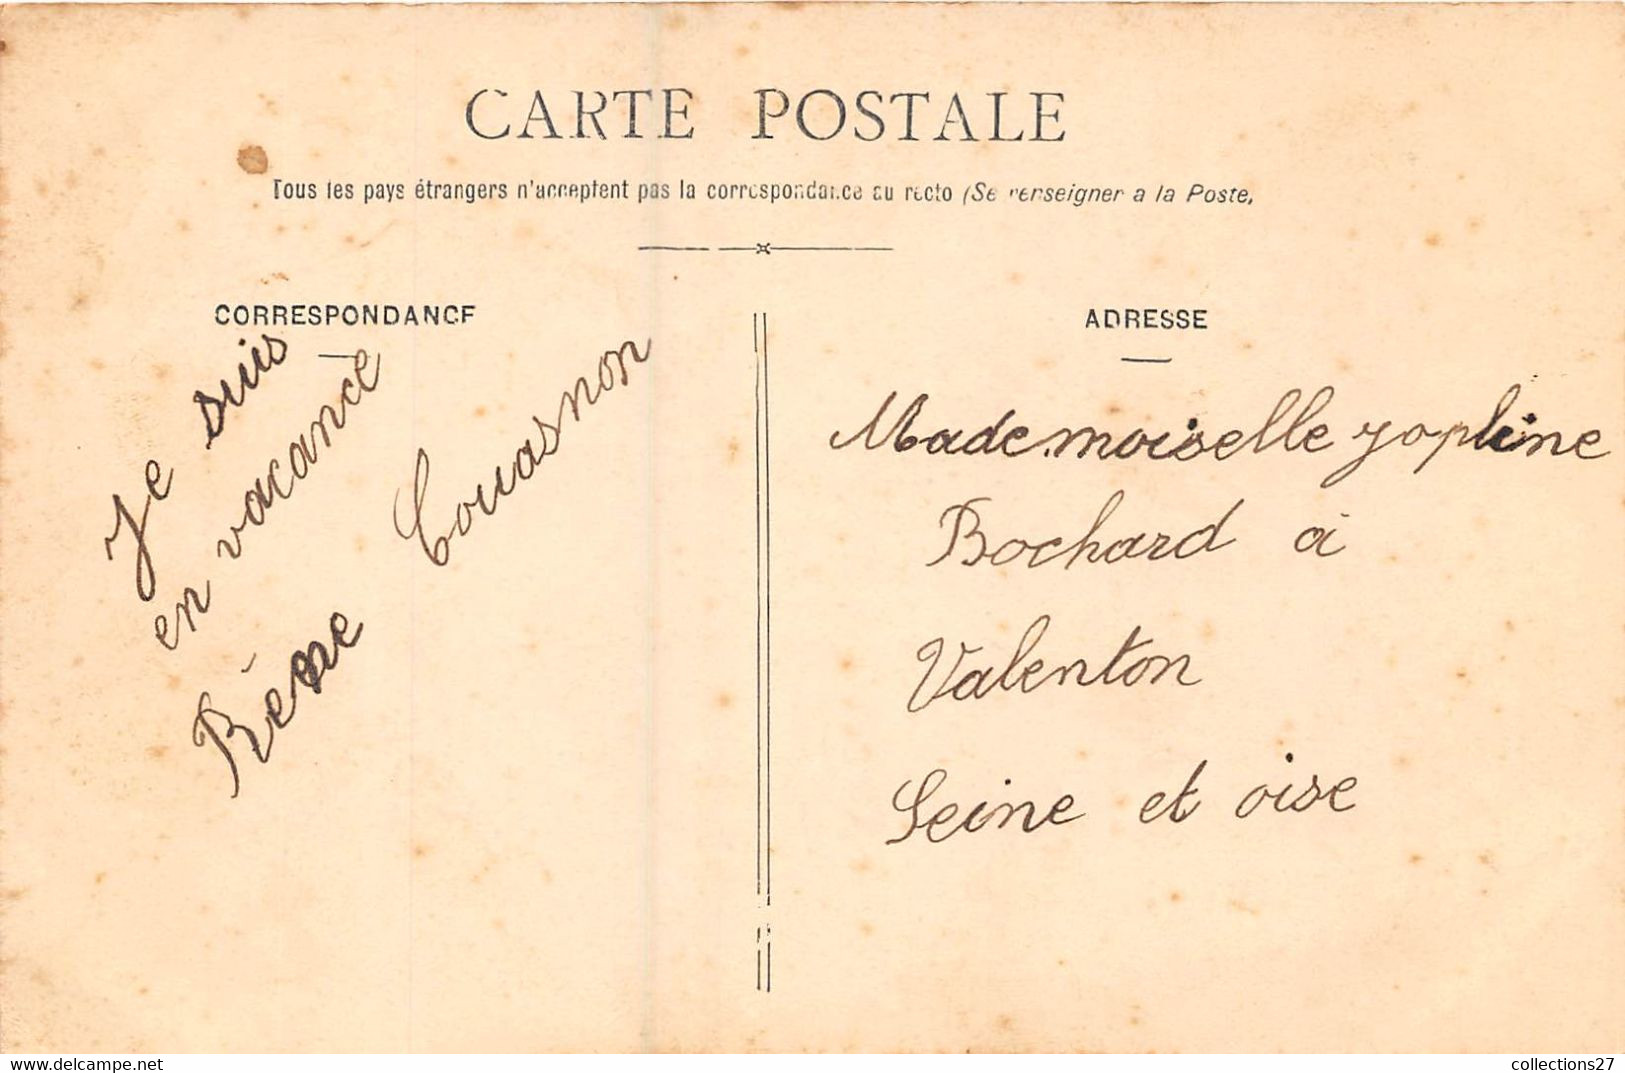 CARTE POSTALE
Tous les pays étrangers n'acceptent pas la correspondance au recto (Se renseigner a la Poste,
CORRESPONDANCE
Je suis
en vacance
Couasnon
ADRESSE
Mademoiselle
Bochard à
Valenton
Seine et oise
collections27